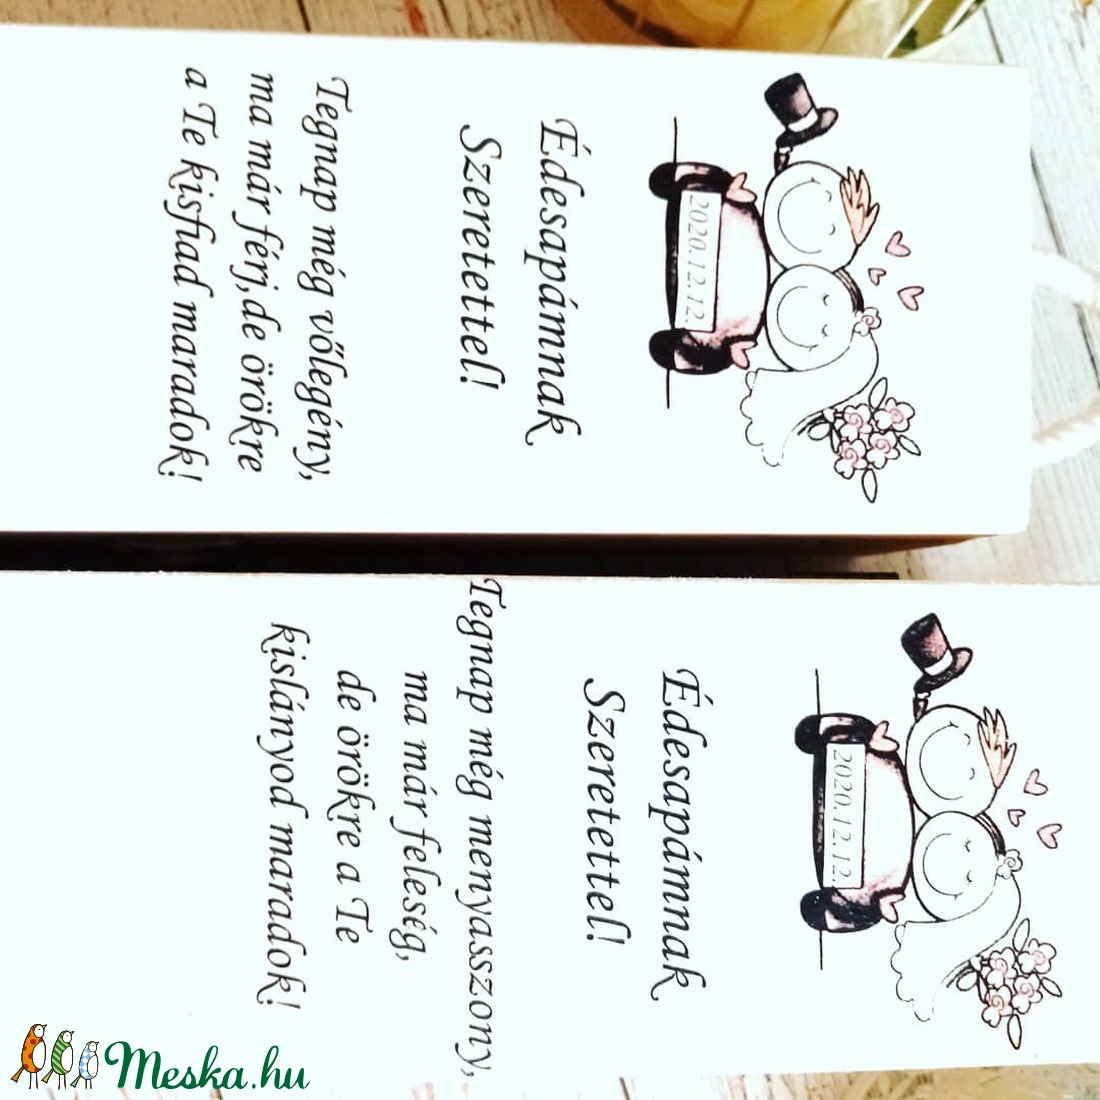 2020.12.12.
Édesapámnak
Szeretettel!
Tegnap még vőlegény,
ma már férj,de örökre
a Te kisfiad maradok!
2020.12.12.
Édesapámnak
Szeretettel!
Tegnap még menyasszony,
ma már feleség,
de örökre a Te
kislányod maradok!
Meska.hu